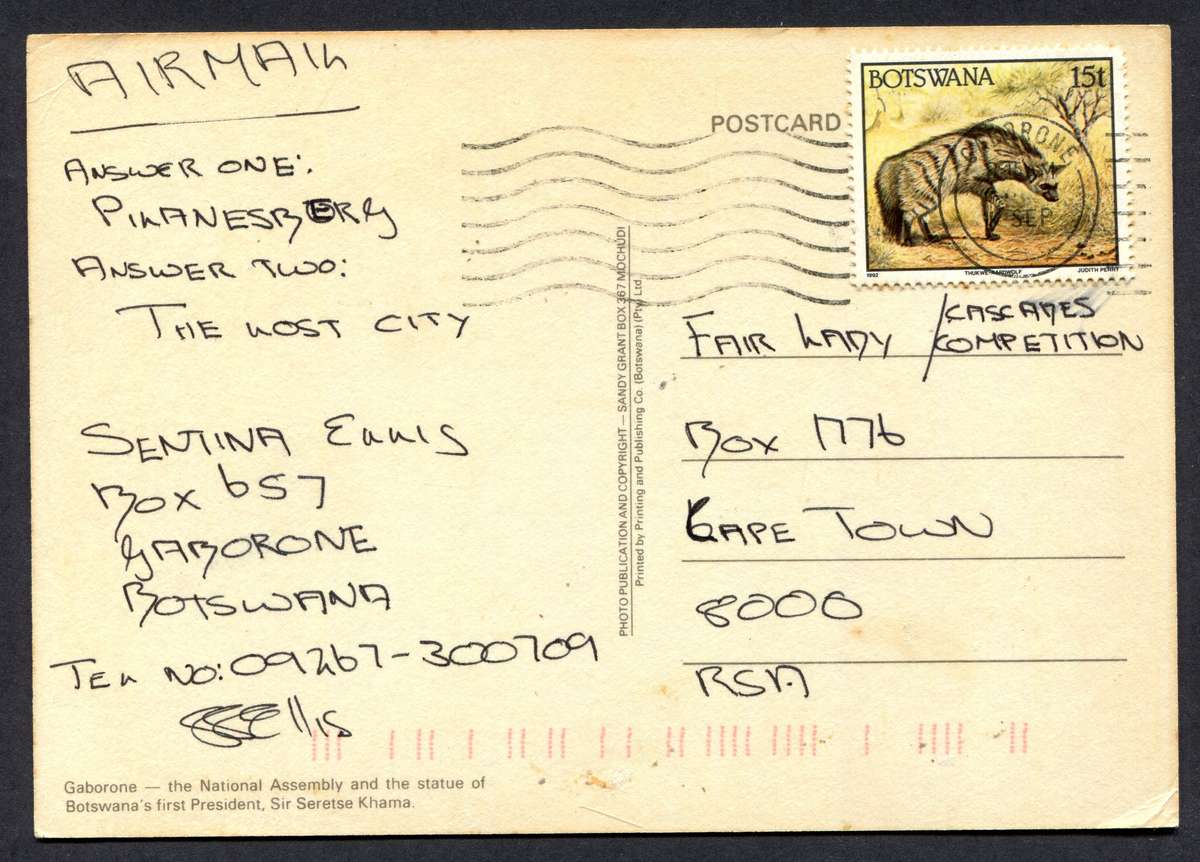 AIRMAIL
ANSWER ONE:
PILANESBERG
ANSWER TWO:
THE LOST CITY
SENTINA ELLIS
BOX 657
GABORONE
BOTSWANA
TEL NO: 09267-300709
Ellis
Gaborone — the National Assembly and the statue of
Botswana's first President, Sir Seretse Khama.
PHOTO PUBLICATION AND COPYRIGHT — SANDY GRANT BOX 367 MOCHUDI
Printed by Printing and Publishing Co. (Botswana) (Pty) Ltd.
POSTCARD
BOTSWANA 15t
GABORONE
SEP
1992 THUKWE-AARDWOLF JUDITH PERRY
FAIR LADY / CASCADES
COMPETITION
BOX 1776
CAPE TOWN
8000
RSA